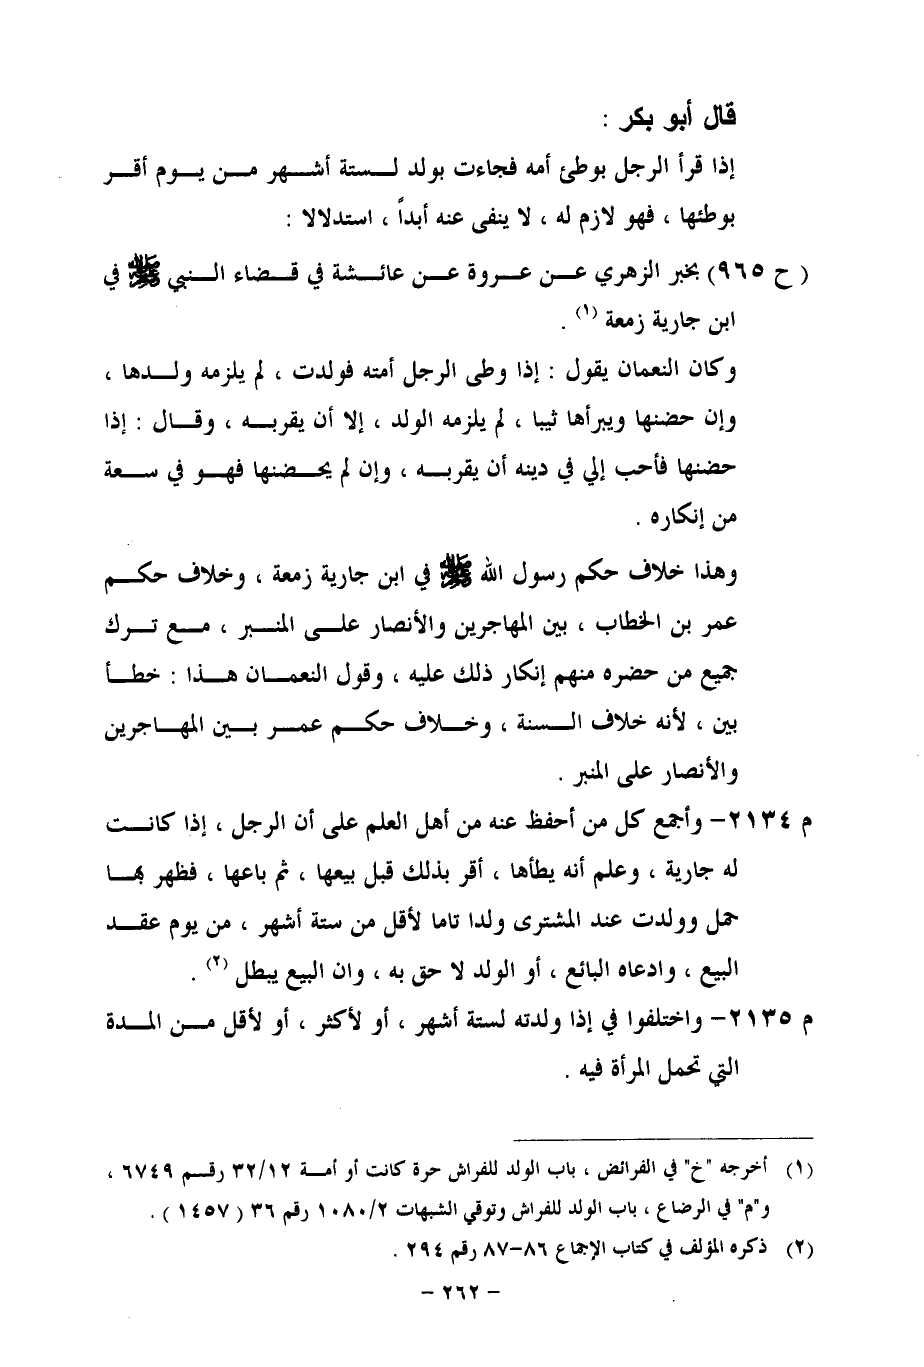 قال أبو بكر :
إذا قرأ الرجل بوطئ أمه فجاءت بولد لـستة أشـهر مـن يـوم أقـر
بوطئها ، فهو لازم له ، لا ينفى عنه أبداً ، استدلالا :
( ح ٩٦٥) بخبر الزهري عـن عـروة عـن عائـشة في قـضاء الـنبي ﷺ في
ابن جارية زمعة (١) .
وكان النعمان يقول : إذا وطى الرجل أمته فولدت ، لم يلزمه ولـدها ،
وإن حضنها ويبرأها ثيبا ، لم يلزمه الولد ، إلا أن يقربـه ، وقـال : إذا
حضنها فأحب إلي في دينه أن يقربـه ، وإن لم يحـضنها فهـو في سـعة
من إنكاره .
وهذا خلاف حكم رسول الله ﷺ في ابن جارية زمعة ، وخلاف حكـم
عمر بن الخطاب ، بين المهاجرين والأنصار علـى المنـبر ، مـع تـرك
جميع من حضره منهم إنكار ذلك عليه ، وقول النعمـان هـذا : خطـأ
بين ، لأنه خلاف الـسنة ، وخـلاف حكـم عمـر بـين المهـاجرين
والأنصار على المنبر .
م ٢١٣٤- وأجمع كل من أحفظ عنه من أهل العلم على أن الرجل ، إذا كانـت
له جارية ، وعلم أنه يطأها ، أقر بذلك قبل بيعها ، ثم باعها ، فظهر بهـا
حمل وولدت عند المشترى ولدا تاما لأقل من ستة أشهر ، من يوم عقـد
البيع ، وادعاه البائع ، أو الولد لا حق به ، وان البيع يبطل (٢) .
م ٢١٣٥- واختلفوا في إذا ولدته لستة أشهر ، أو لأكثر ، أو لأقل مـن المـدة
التي تحمل المرأة فيه .
(١) أخرجه "خ" في الفرائض ، باب الولد للفراش حرة كانت أو أمـة ٣٢/١٢ رقـم ٦٧٤٩ ،
و"م" في الرضاع ، باب الولد للفراش وتوقي الشبهات ١٠٨٠/٢ رقم ٣٦ ( ١٤٥٧ ) .
(٢) ذكره المؤلف في كتاب الإجماع ٨٦-٨٧ رقم ٢٩٤ .
- ٢٦٢ -